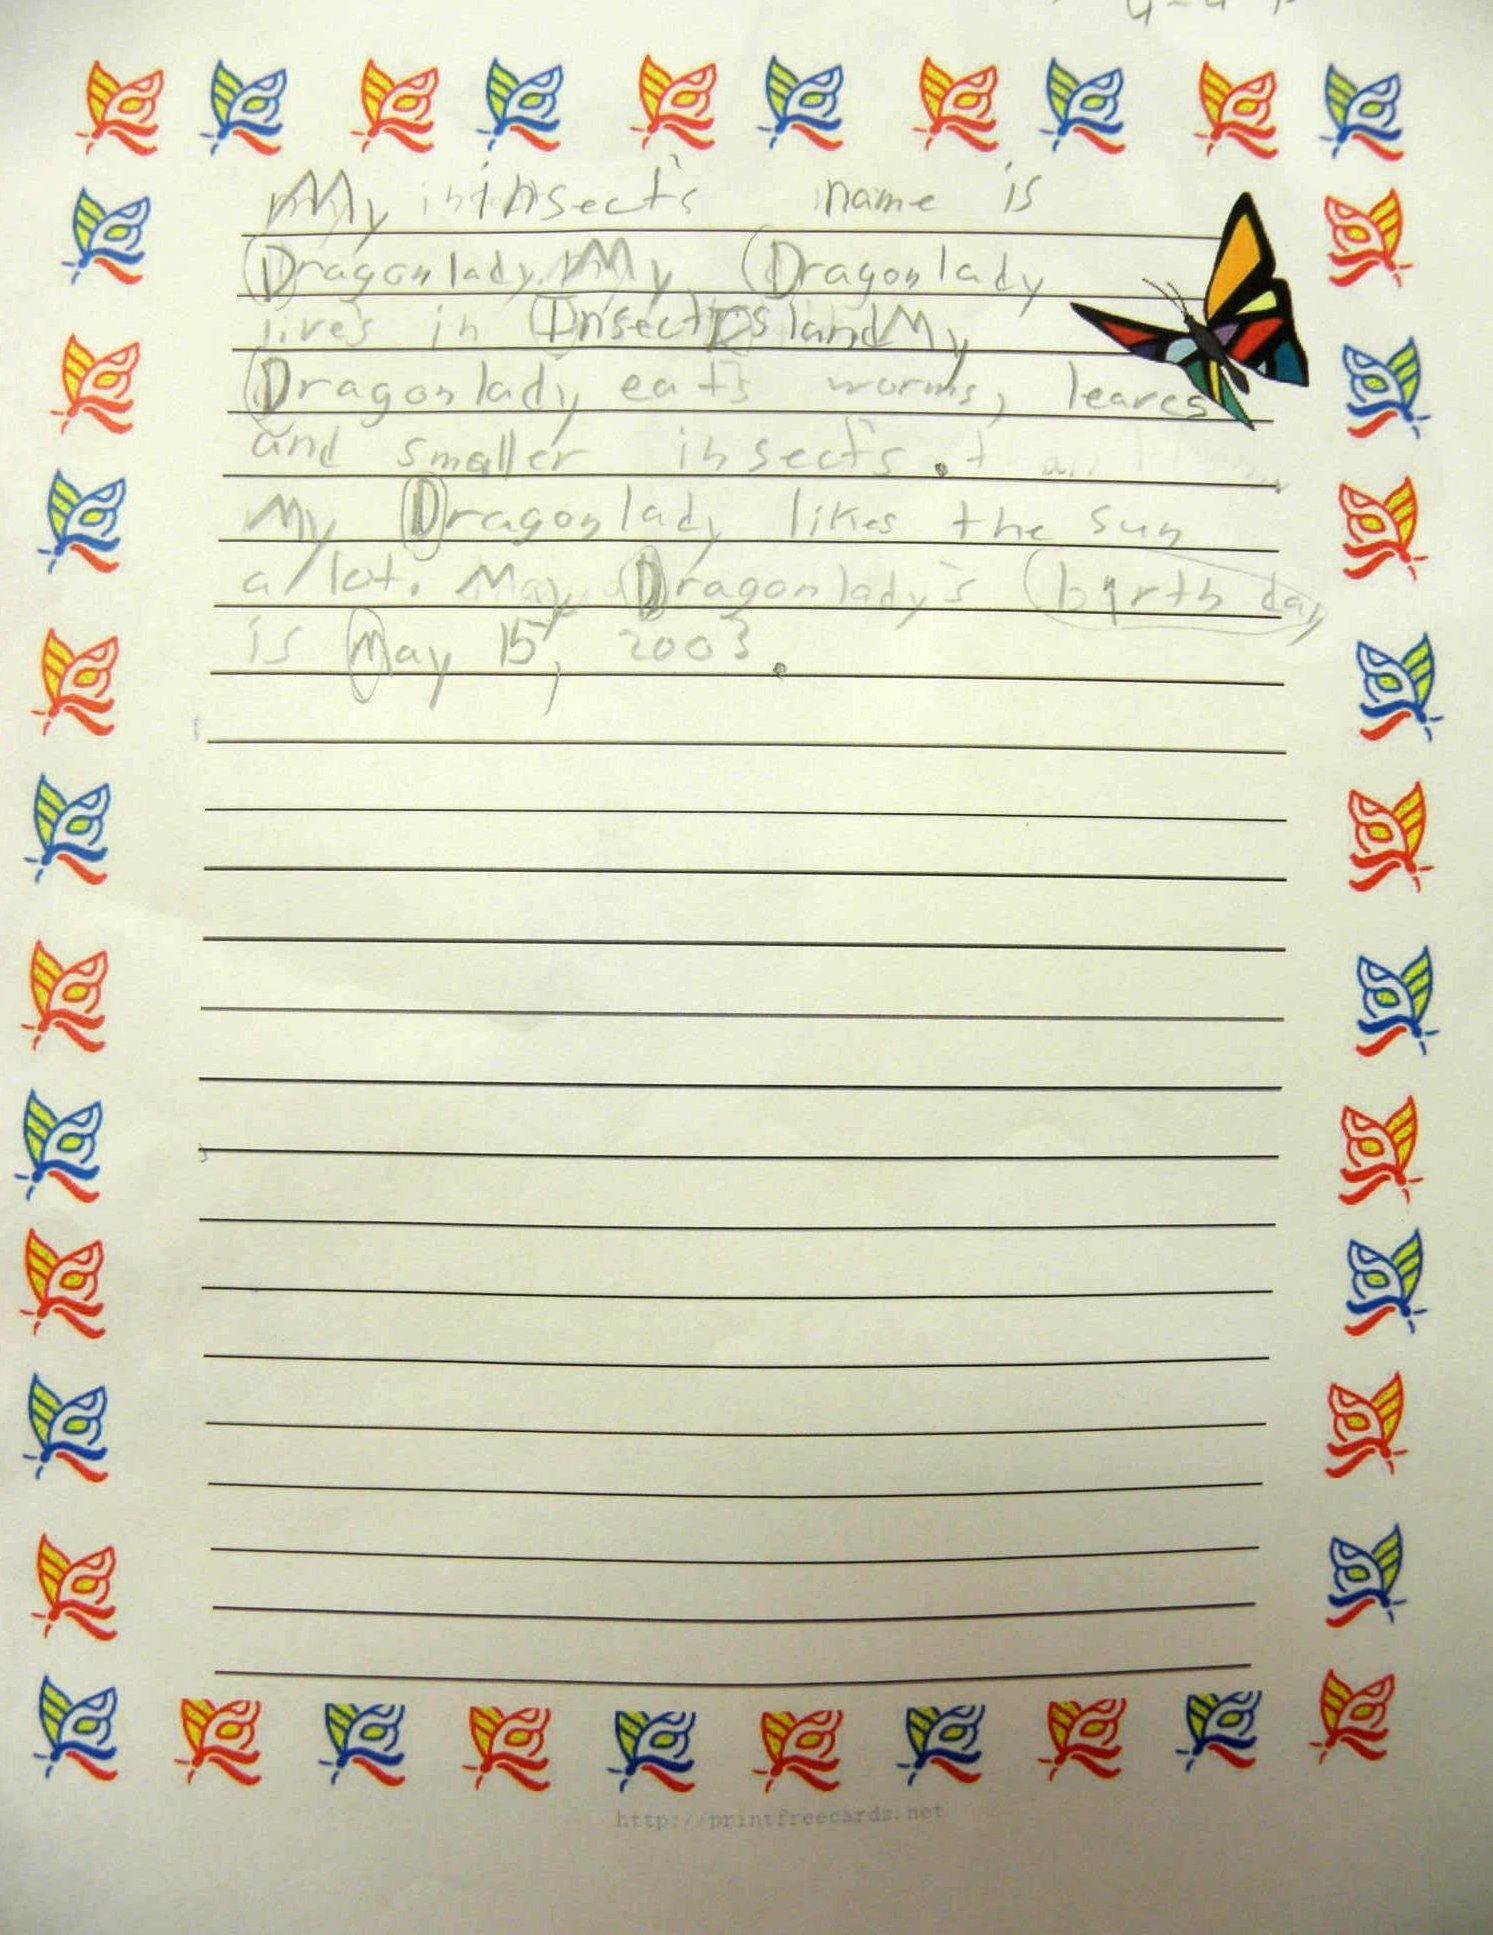 My insect's name is
Dragonlady. My Dragonlady
lives in Insect Island My
Dragonlady eats worms, leaves
and smaller insects.
My Dragonlady likes the sun
a/lot. My Dragonlady's birth day
is May 15, 2003.
http://printfreecards.net